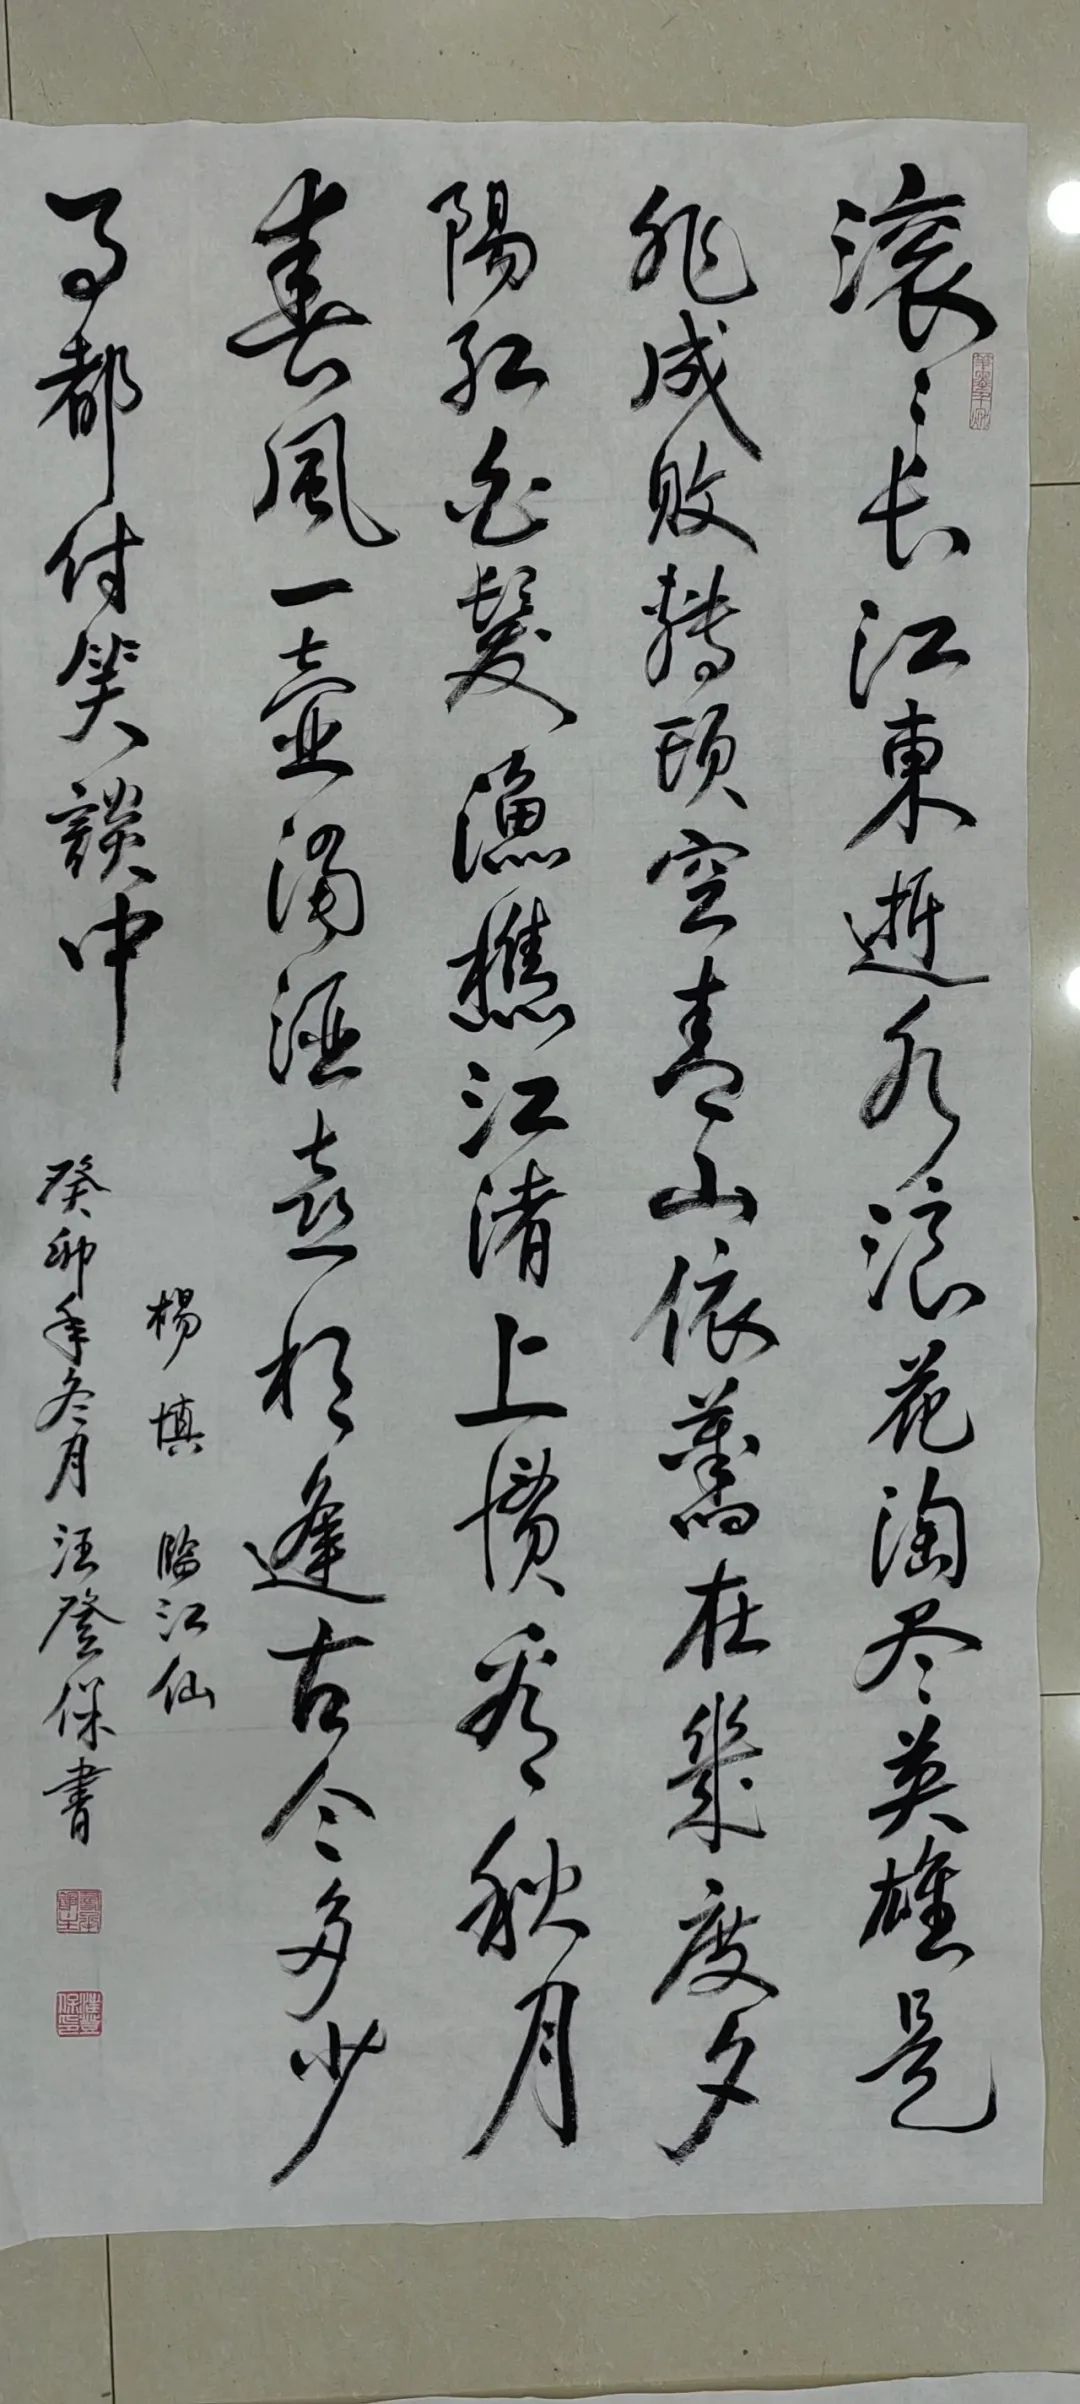 滚〻长江東逝水浪花淘尽英雄是
非成敗轉頭空青山依舊在幾度夕
陽紅白髮漁樵江渚上慣看秋月
春風一壶濁酒喜相逢古今多少
事都付笑談中
楊慎 臨江仙
癸卯年冬月汪登保書